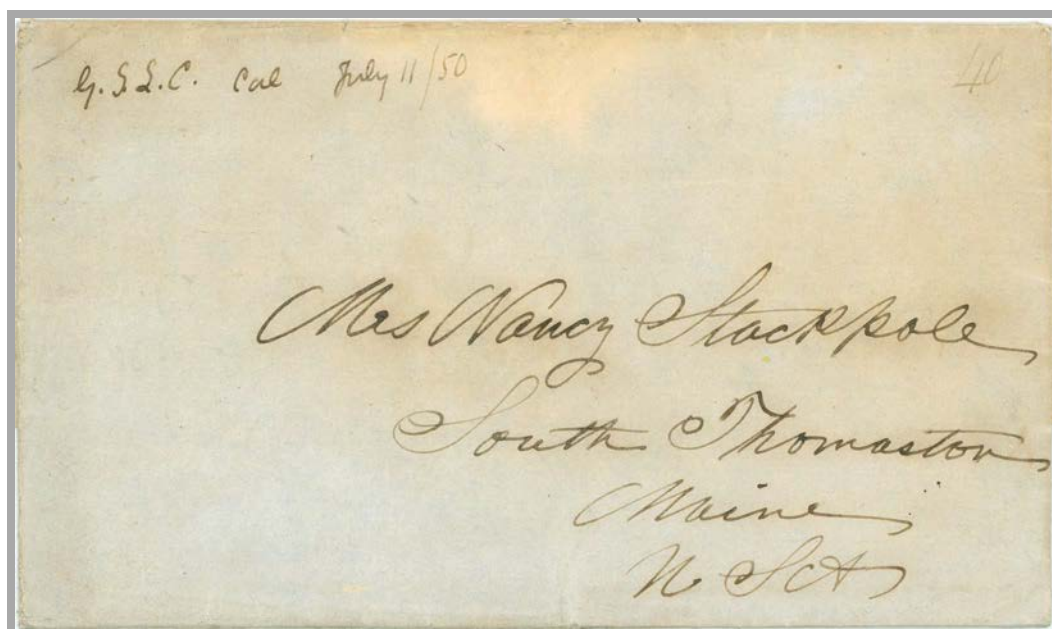 G. S. L. C. Cal July 11/50 40
Mrs Nancy Stackpole
South Thomaston
Maine